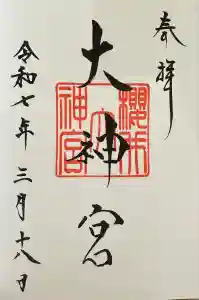 奉拝
大神宮
櫻木
神宮
令和七年三月十八日